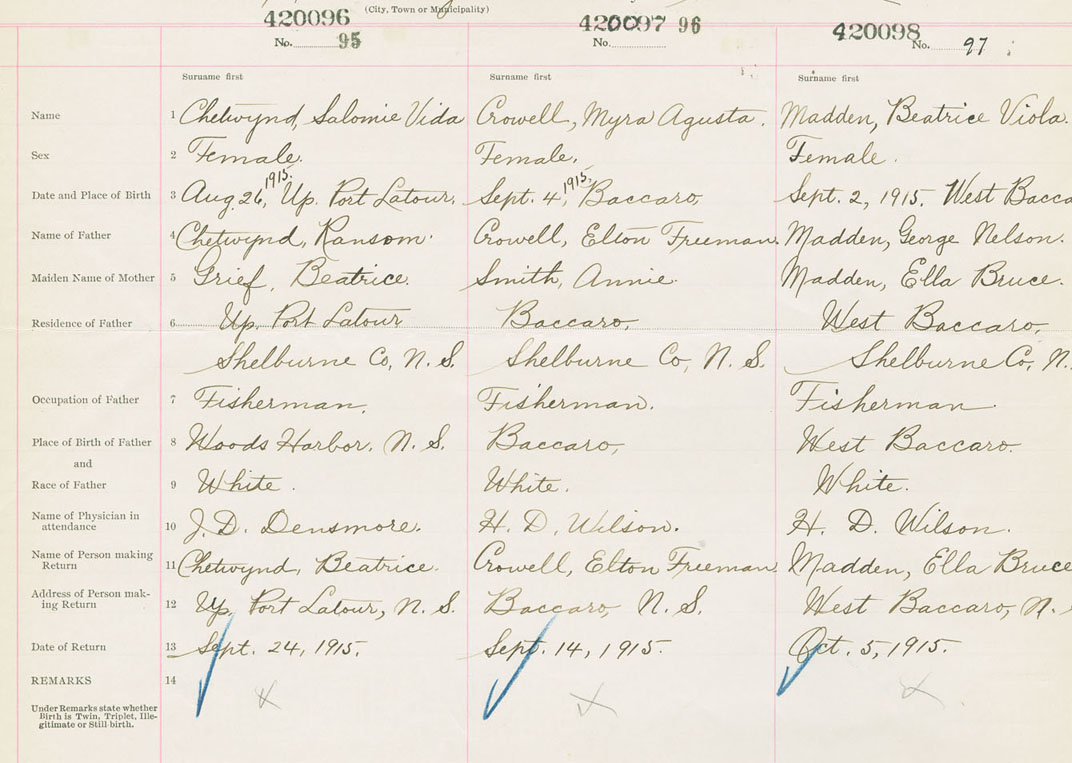 (City, Town or Municipality)
420096 420097 96 420098
No. 95 No. No. 97
Surname first Surname first Surname first
Name 1 Chetwynd, Salomie Vida Crowell, Myra Agusta. Madden, Beatrice Viola.
Sex 2 Female. Female. Female.
Date and Place of Birth 3 Aug. 26, 1915. Up. Port Latour. Sept. 4, 1915. Baccaro, Sept. 2, 1915. West Bacca
Name of Father 4 Chetwynd, Ransom. Crowell, Elton Freeman. Madden, George Nelson.
Maiden Name of Mother 5 Grief, Beatrice. Smith, Annie. Madden, Ella Bruce.
Residence of Father 6 Up. Port Latour Baccaro, West Baccaro,
Shelburne Co, N. S. Shelburne Co, N. S. Shelburne Co, N.
Occupation of Father 7 Fisherman. Fisherman. Fisherman
Place of Birth of Father 8 Woods Harbor. N. S. Baccaro, West Baccaro.
and
Race of Father 9 White. White. White.
Name of Physician in
attendance 10 J. D. Densmore. H. D. Wilson. H. D. Wilson.
Name of Person making
Return 11 Chetwynd, Beatrice. Crowell, Elton Freeman. Madden, Ella Bruce
Address of Person mak-
ing Return 12 Up. Port Latour, N. S. Baccaro, N. S. West Baccaro, N.
Date of Return 13 Sept. 24, 1915. Sept. 14, 1915. Oct. 5, 1915.
REMARKS 14
Under Remarks state whether
Birth is Twin, Triplet, Ille-
gitimate or Still-birth.